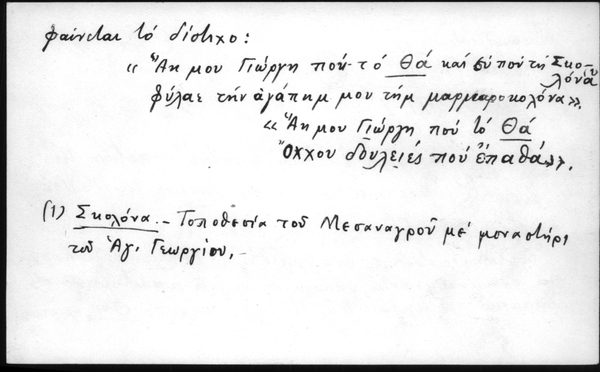 φαίνεται τό δίστιχο:
« Ἅη μου Γιώργη πού τό Θά καί σύ πού τή Σκο-
λόνα
φύλαε τήν ἀγάπημ μου τήμ μαρμαροκολόνα».
« Ἅη μου Γιώργη πού τό Θά
Ὄχχου δδυλειές πού ἔπαθά».
(1) Σκολόνα.- Τοποθεσία τοῦ Μεσαναγροῦ μέ μοναστήρι
τοῦ Ἁγ. Γεωργίου.-